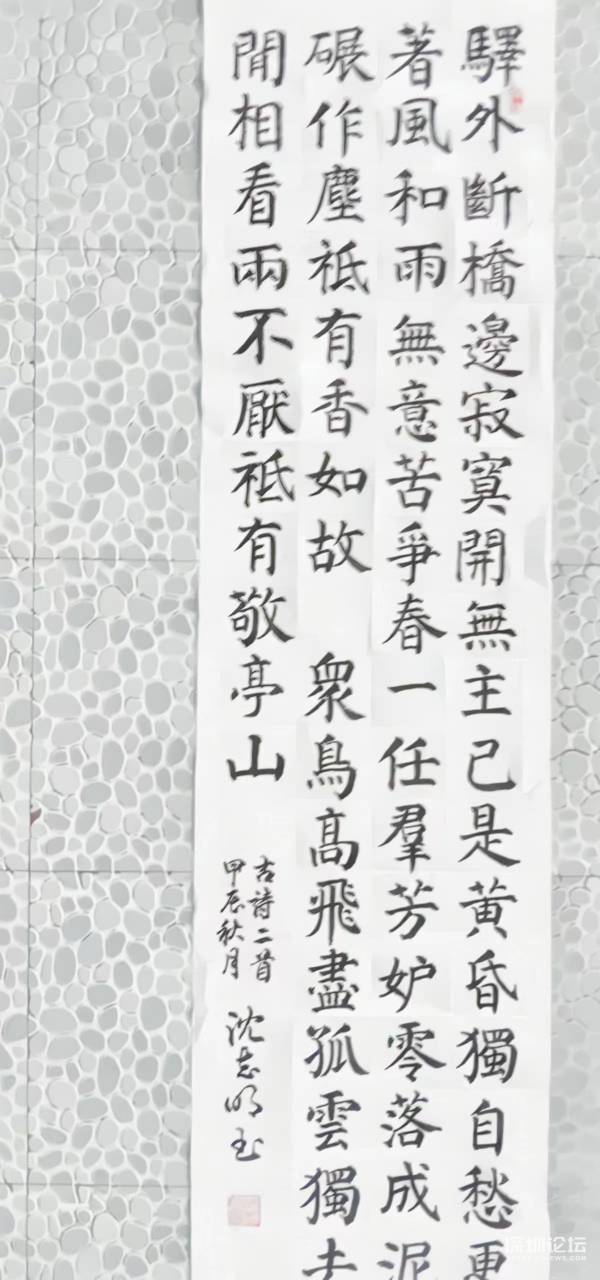 驛外斷橋邊寂寞開無主已是黃昏獨自愁更
著風和雨無意苦爭春一任羣芳妒零落成泥
碾作塵祗有香如故 衆鳥高飛盡孤雲獨去
閒相看兩不厭祗有敬亭山
古詩二首
甲辰秋月
沈志明
深圳论坛